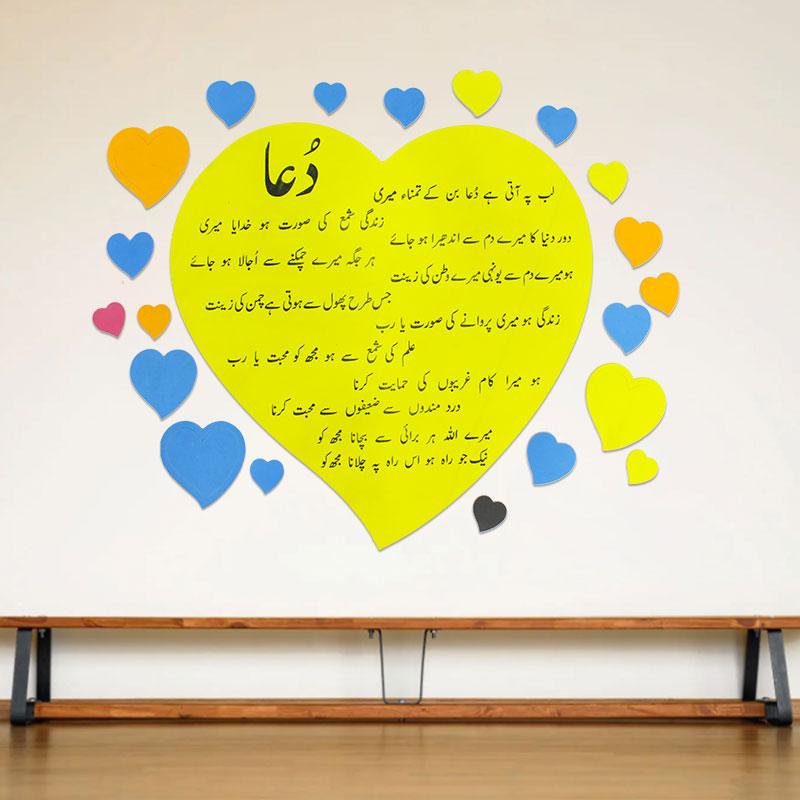 دُعا
لب پہ آتی ہے دُعا بن کے تمناء میری
زندگی شمع کی صورت ہو خدایا میری
دور دنیا کا میرے دم سے اندھیرا ہو جائے
ہر جگہ میرے چمکنے سے اُجالا ہو جائے
ہو میرے دم سے یونہی میرے وطن کی زینت
جس طرح پھول سے ہوتی ہے چمن کی زینت
زندگی ہو میری پروانے کی صورت یا رب
علم کی شمع سے ہو مجھ کو محبت یا رب
ہو میرا کام غریبوں کی حمایت کرنا
درد مندوں سے ضعیفوں سے محبت کرنا
میرے اللہ ہر برائی سے بچانا مجھ کو
نیک جو راہ ہو اس راہ پہ چلانا مجھ کو